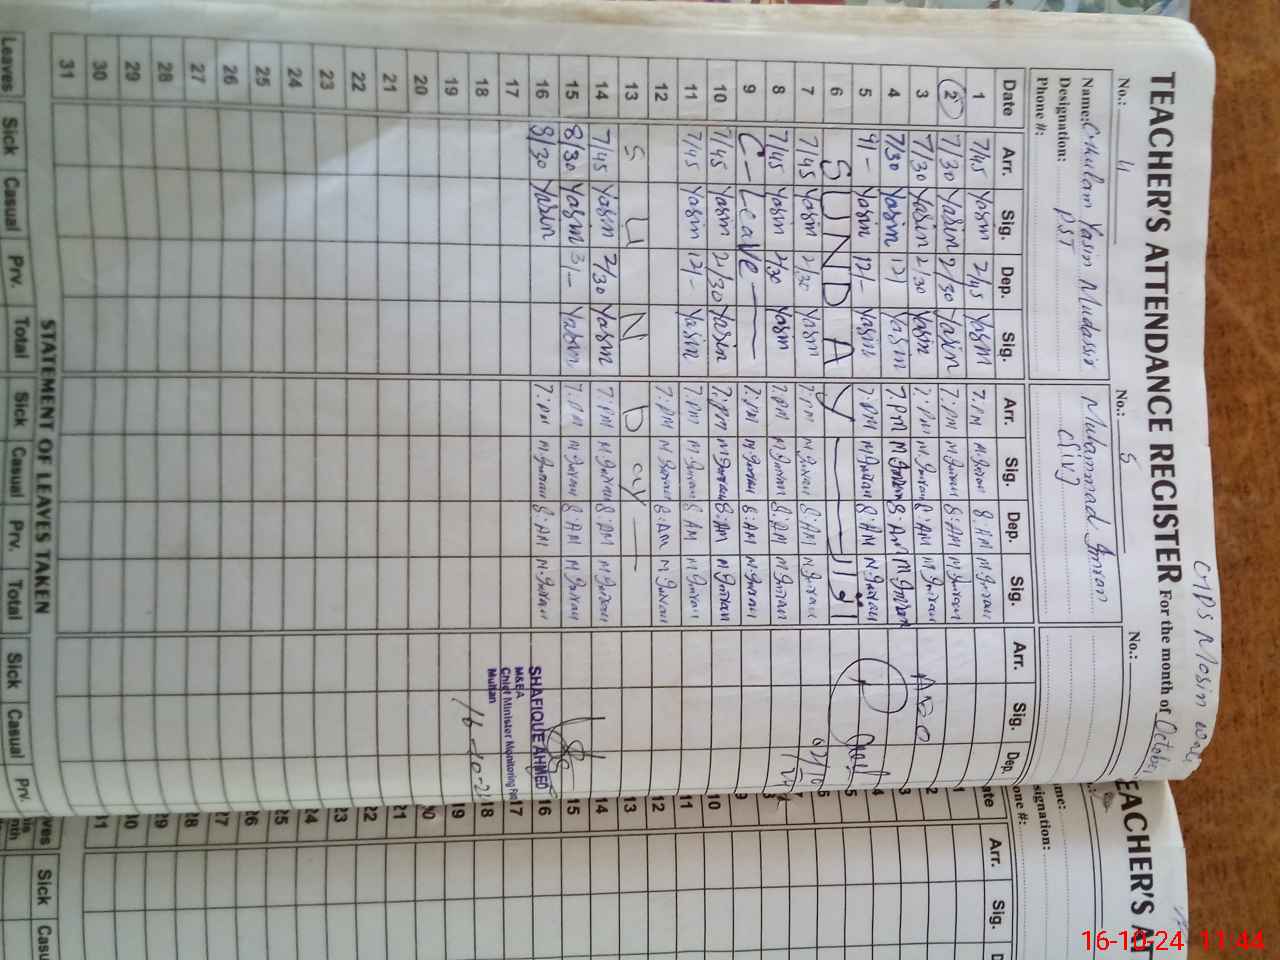 GMPS Mosin Wali
TEACHER'S ATTENDANCE REGISTER For the month of October
No.: 4
Name: Ghulam Yasin Mudassir
Designation: PST
Phone #:
No.: 5
Muhammad Imran
No.:
Date Arr. Sig. Dep. Sig. Arr. Sig. Dep. Sig. Arr. Sig. Dep.
1 7/45 Yasin 2/45 Yasin 7:PM M.Imran 8:AM M.Imran
2 7/30 Yasin 2/30 Yasin 7:PM M.Imran 8:AM M.Imran
3 7/30 Yasin 2/30 Yasin 7:PM M.Imran 8:AM M.Imran
4 7/30 Yasin 12/ Yasin 7:PM M.Imran 8:AM M.Imran
5 9/- Yasin 12/- Yasin 7:PM M.Imran 8:AM M.Imran
6 SUNDAY
7 7/45 Yasin 2/30 Yasin 7:PM M.Imran 8:AM M.Imran
8 7/45 Yasin 2/30 Yasin 7:PM M.Imran 8:AM M.Imran
9 C-Leave 7:PM M.Imran 8:AM M.Imran
10 7/45 Yasin 2/30 Yasin 7:PM M.Imran 8:AM M.Imran
11 7/45 Yasin 12/- Yasin 7:PM M.Imran 8:AM M.Imran
12 7:PM M.Imran 8:AM M.Imran
13 SUNDay
14 7/45 Yasin 2/30 Yasin 7:PM M.Imran 8:AM M.Imran
15 8/30 Yasin 3/- Yasin 7:PM M.Imran 8:AM M.Imran
16 8/30 Yasin 7:PM M.Imran 8:AM M.Imran
17
18
19
20
21
22
23
24
25
26
27
28
29
30
31
AEO
SHAFIQUE AHMED
M&EA
Chief Minister Monitoring
Multan
STATEMENT OF LEAVES TAKEN
Leaves Sick Casual Prv. Total Sick Casual Prv. Total Sick Casual Prv.
EACHER'S AT
me:
signation:
one #:
ate Arr. Sig.
1
2
3
4
5
6
7
8
9
10
11
12
13
14
15
16
17
18
19
20
21
22
23
24
25
26
27
28
29
30
31
aves Sick Casu
nth
16-10-24 11:44